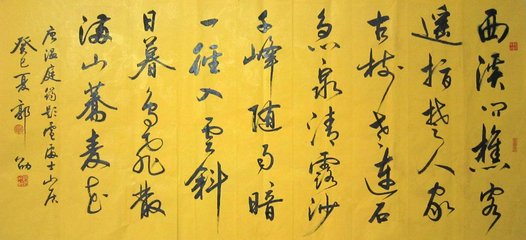 西溪问樵客
遥指楚人家
古树老连石
急泉清露沙
千峰随雨暗
一径入云斜
日暮鸟飞散
满山荞麦花
唐温庭筠题卢处士山居
癸巳夏 郭